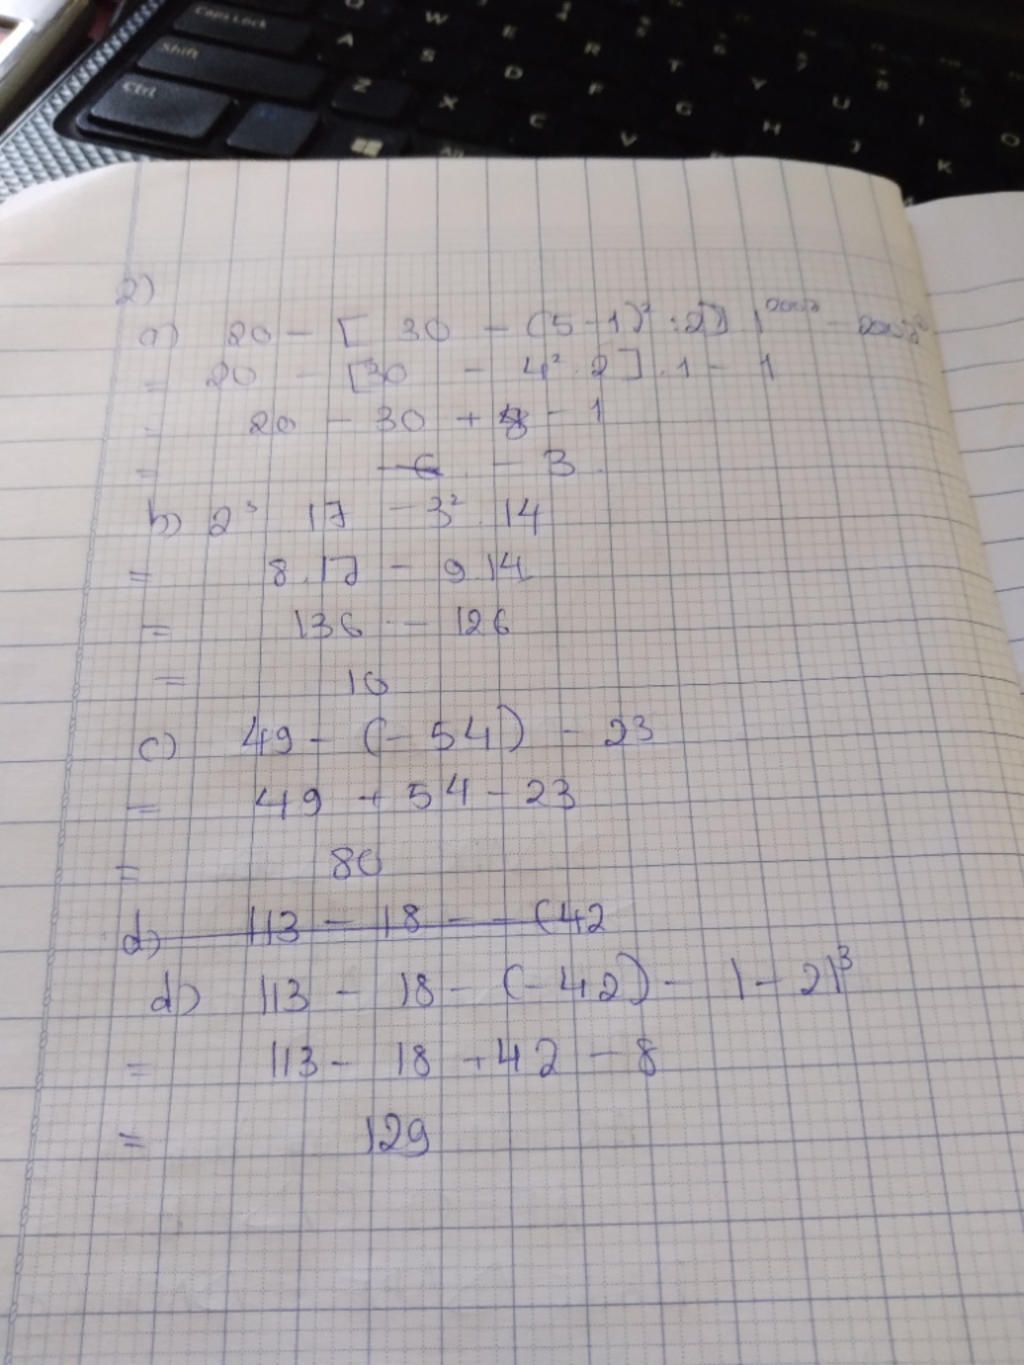 Caps Lock
Shift
Ctrl
2)
a) 20 - [ 30 - (5-1)² : 2] 1
= 20 - [30 - 4² : 2] . 1 - 1
= 20 - 30 + 8 - 1
= - 3
b) 2³ 17 - 3² . 14
= 8.17 - 9.14
= 136 - 126
= 10
c) 49 - (- 54) - 23
= 49 + 54 - 23
= 80
d) 113 - 18 - - (42
d) 113 - 18 - (- 42) - |- 2|³
= 113 - 18 + 42 - 8
= 129